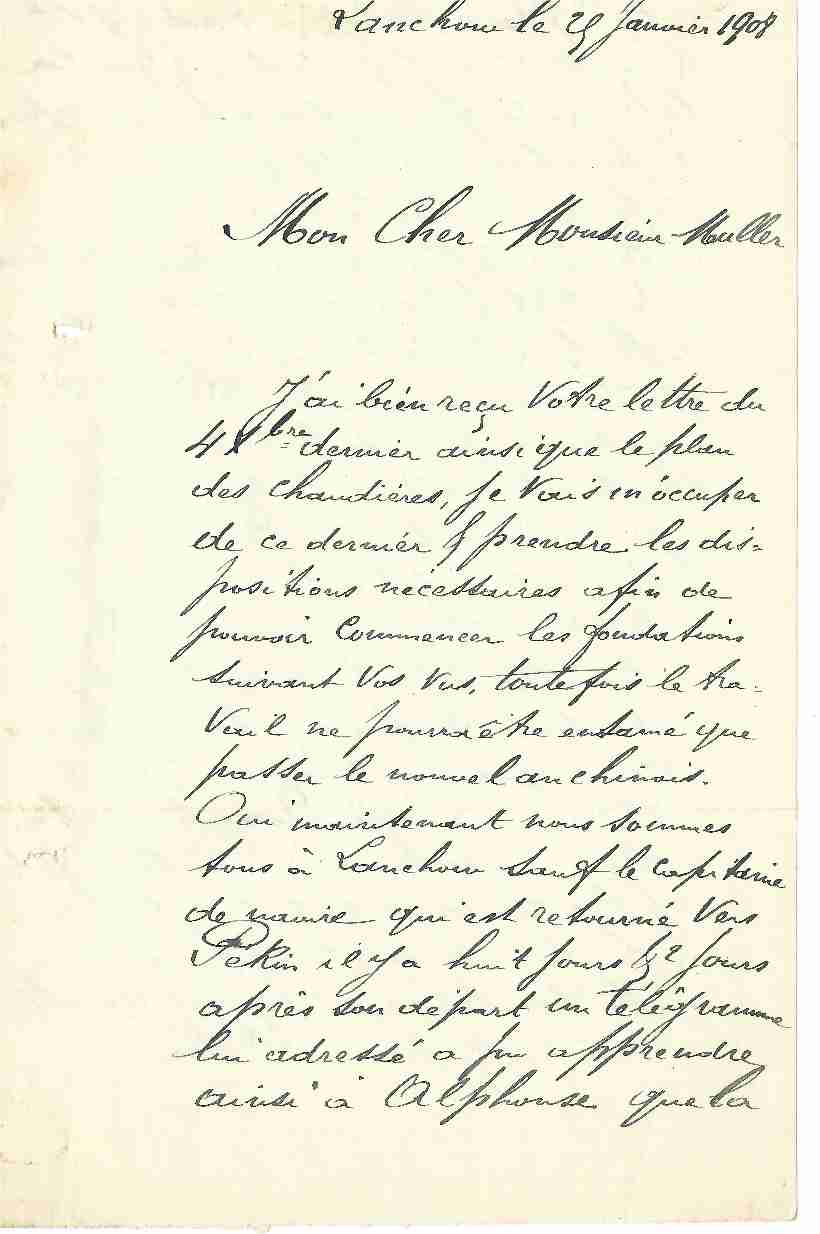 Lanchow le 25 Janvier 1908
Mon Cher Monsieur Muller
J'ai bien reçu Votre lettre du
4 Xbre dernier ainsi que le plan
des chaudières, je Vais m'occuper
de ce dernier & prendre les dis=
positions nécessaires afin de
pouvoir Commencer les fondations
suivant Vos Vus, toutefois le tra=
Vail ne pourra être entamé que
passer le nouvel an chinois.
Oui maintenant nous sommes
tous à Lanchow sauf le Capitaine
de navire qui est retourné Vers
Pékin il y a huit jours & 2 jours
après son départ un télégramme
lui adressé a pu apprendre
ainsi à Alphonse que la